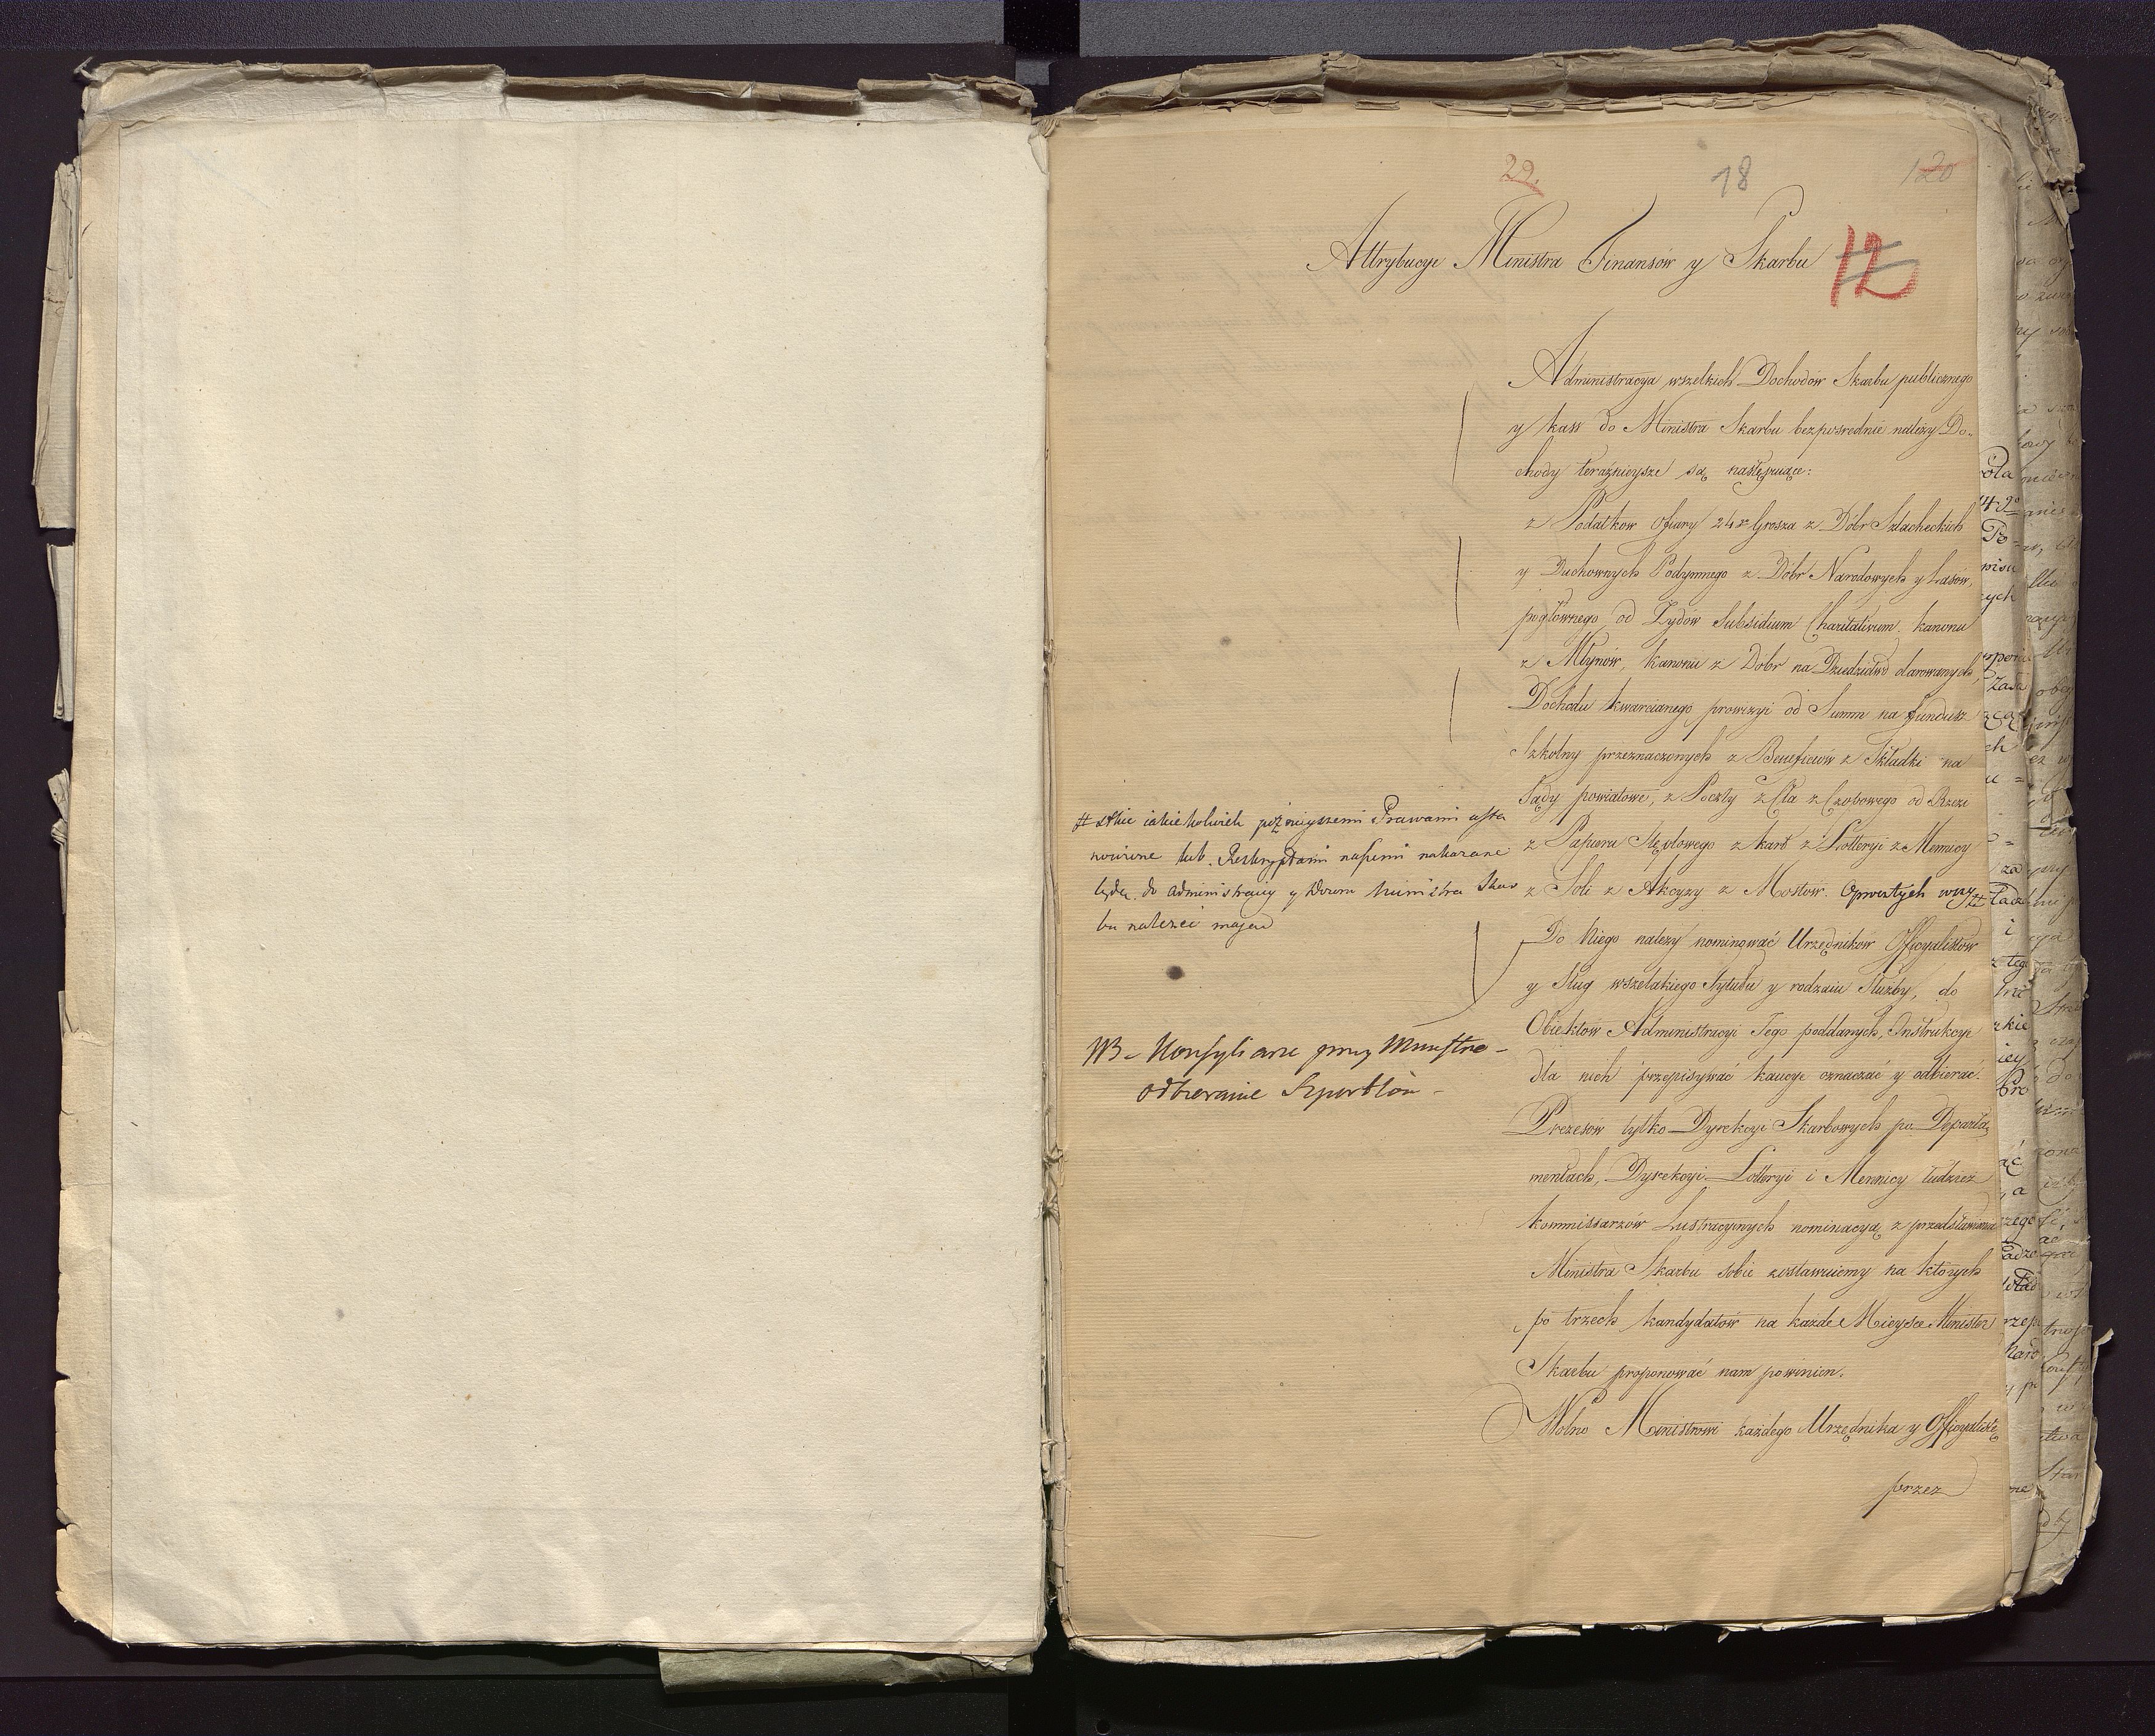 22.
18
120
Attrybucye Ministra Finansów y Skarbu
12
Administracya wszelkich Dochodów Skarbu publicznego
y kass do Ministra Skarbu bezpośrednie należy Do-
chody teraźnieysze są następuiące:
z Podatkow Ofiary 24go Grosza z Dóbr Szlacheckich
y Duchownych Podymnego z Dóbr Narodowych y Lasów,
pogłównego od Żydów Subsidium Charitativum, kanonu
z Młynów, kanonu z Dobr na Dziedzictwo darowanych,
Dochodu kwarcianego prowizyi od Summ na fundusz
Szkolny przeznaczonych z Beneficiów z Składki na
Sądy powiatowe, z Poczty z Cła z Czopowego od Rzezi
z Papieru Stęplowego z kart z Lotteryi z Mennicy
z Soli z Akcyzy z Mostów. Oprócz tych wszy#
# stkie iakiekolwiek poźnieyszemi Prawami usta
nowione lub Reskryptami naszemi nakazane
będą, do administracyi y Dozoru Ministra Skar
bu należeć mają
Do Niego należy nominować Urzędników Officyalistow
y Sług wszelakiego Tytułu y rodzaiu Służby, do
Obiektów Administracyi Jego poddanych, Instrukcye
dla nich przepisywać kaucye oznaczać y odbierać.
NB - Konsyliarze przy Ministrze -
odbieranie Szportlów -
Prezesow tylko Dyrekcyi Skarbowych po Departa
mentach, Dyrekcyi Lotteryi i Mennicy tudzież
kommissarzów Lustracyinych nominacyą z przedstawienia
Ministra Skarbu sobie zostawuiemy na których
po trzech kandydatów na każde Mieysce Minister
Skarbu proponować nam powinien.
Wolno Ministrowi każdego Urzędnika y Officyalistę
przez